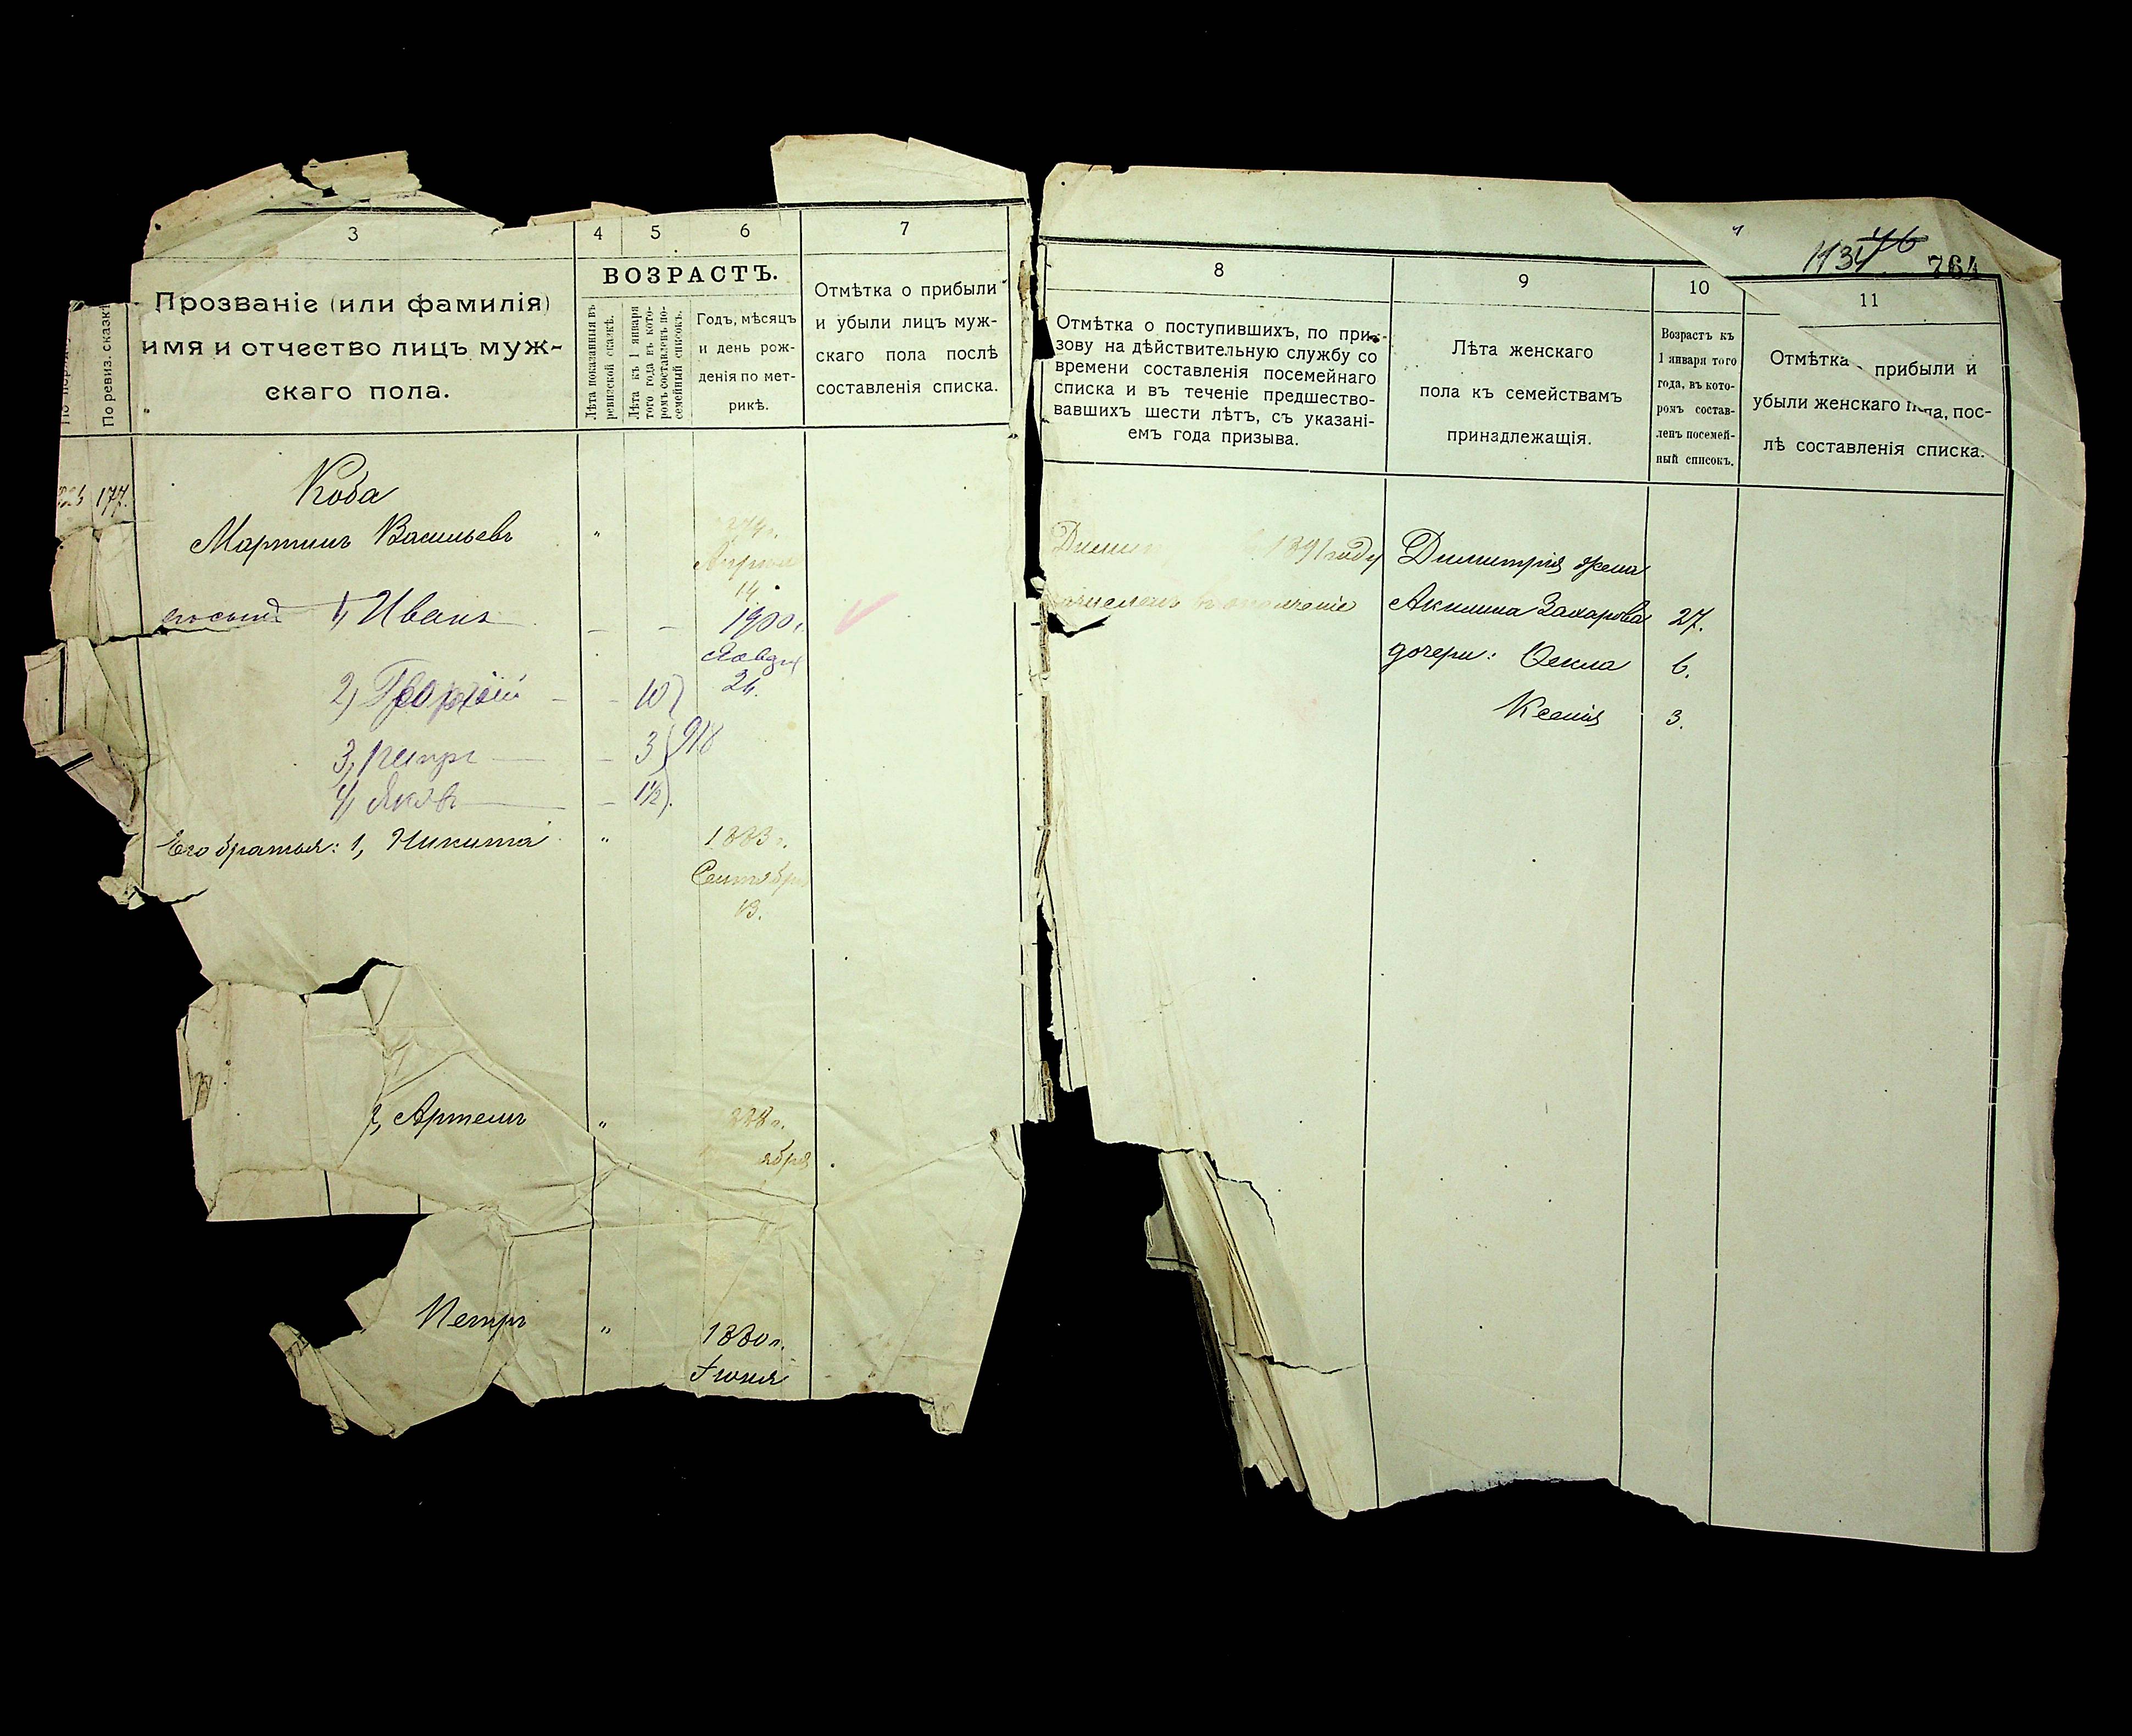 3
4
5
6
7
ВОЗРАСТЪ.
По ревиз. сказкѣ
Прозваніе (или фамилія)
имя и отчество лицъ муж-
скаго пола.
Лѣта показанныя въ
ревизской сказкѣ.
Лѣта къ 1 января
того года въ кото-
ромъ составленъ по-
семейный списокъ.
Годъ, мѣсяцъ
и день рож-
денія по мет-
рикѣ.
Отмѣтка о прибыли
и убыли лицъ муж-
скаго пола послѣ
составленія списка.
177.
Коба
Мартинъ Васильевъ "
Апрѣля
14.
1, Иванъ 1900 г.
24.
2) Георгій 10
3, Петръ 3 918
4, Яковъ 1½
Его братья: 1, Никита " 1883 г.
Сентября
13.
2, Артемъ "
ября
Петръ " 1880 г.
Іюня
1134 46 764
8
9
10
11
Отмѣтка о поступившихъ, по при-
зову на дѣйствительную службу со
времени составленія посемейнаго
списка и въ теченіе предшество-
вавшихъ шести лѣтъ, съ указані-
емъ года призыва.
Лѣта женскаго
пола къ семействамъ
принадлежащія.
Возрастъ къ
1 января того
года, въ кото-
ромъ состав-
ленъ посемей-
ный списокъ.
Отмѣтка прибыли и
убыли женскаго пола, пос-
лѣ составленія списка.
1891 году Димитрія жена
зачисленъ въ ополченіе Акилина Захарова 27.
дочери: Ѳекла 6.
Ксенія 3.